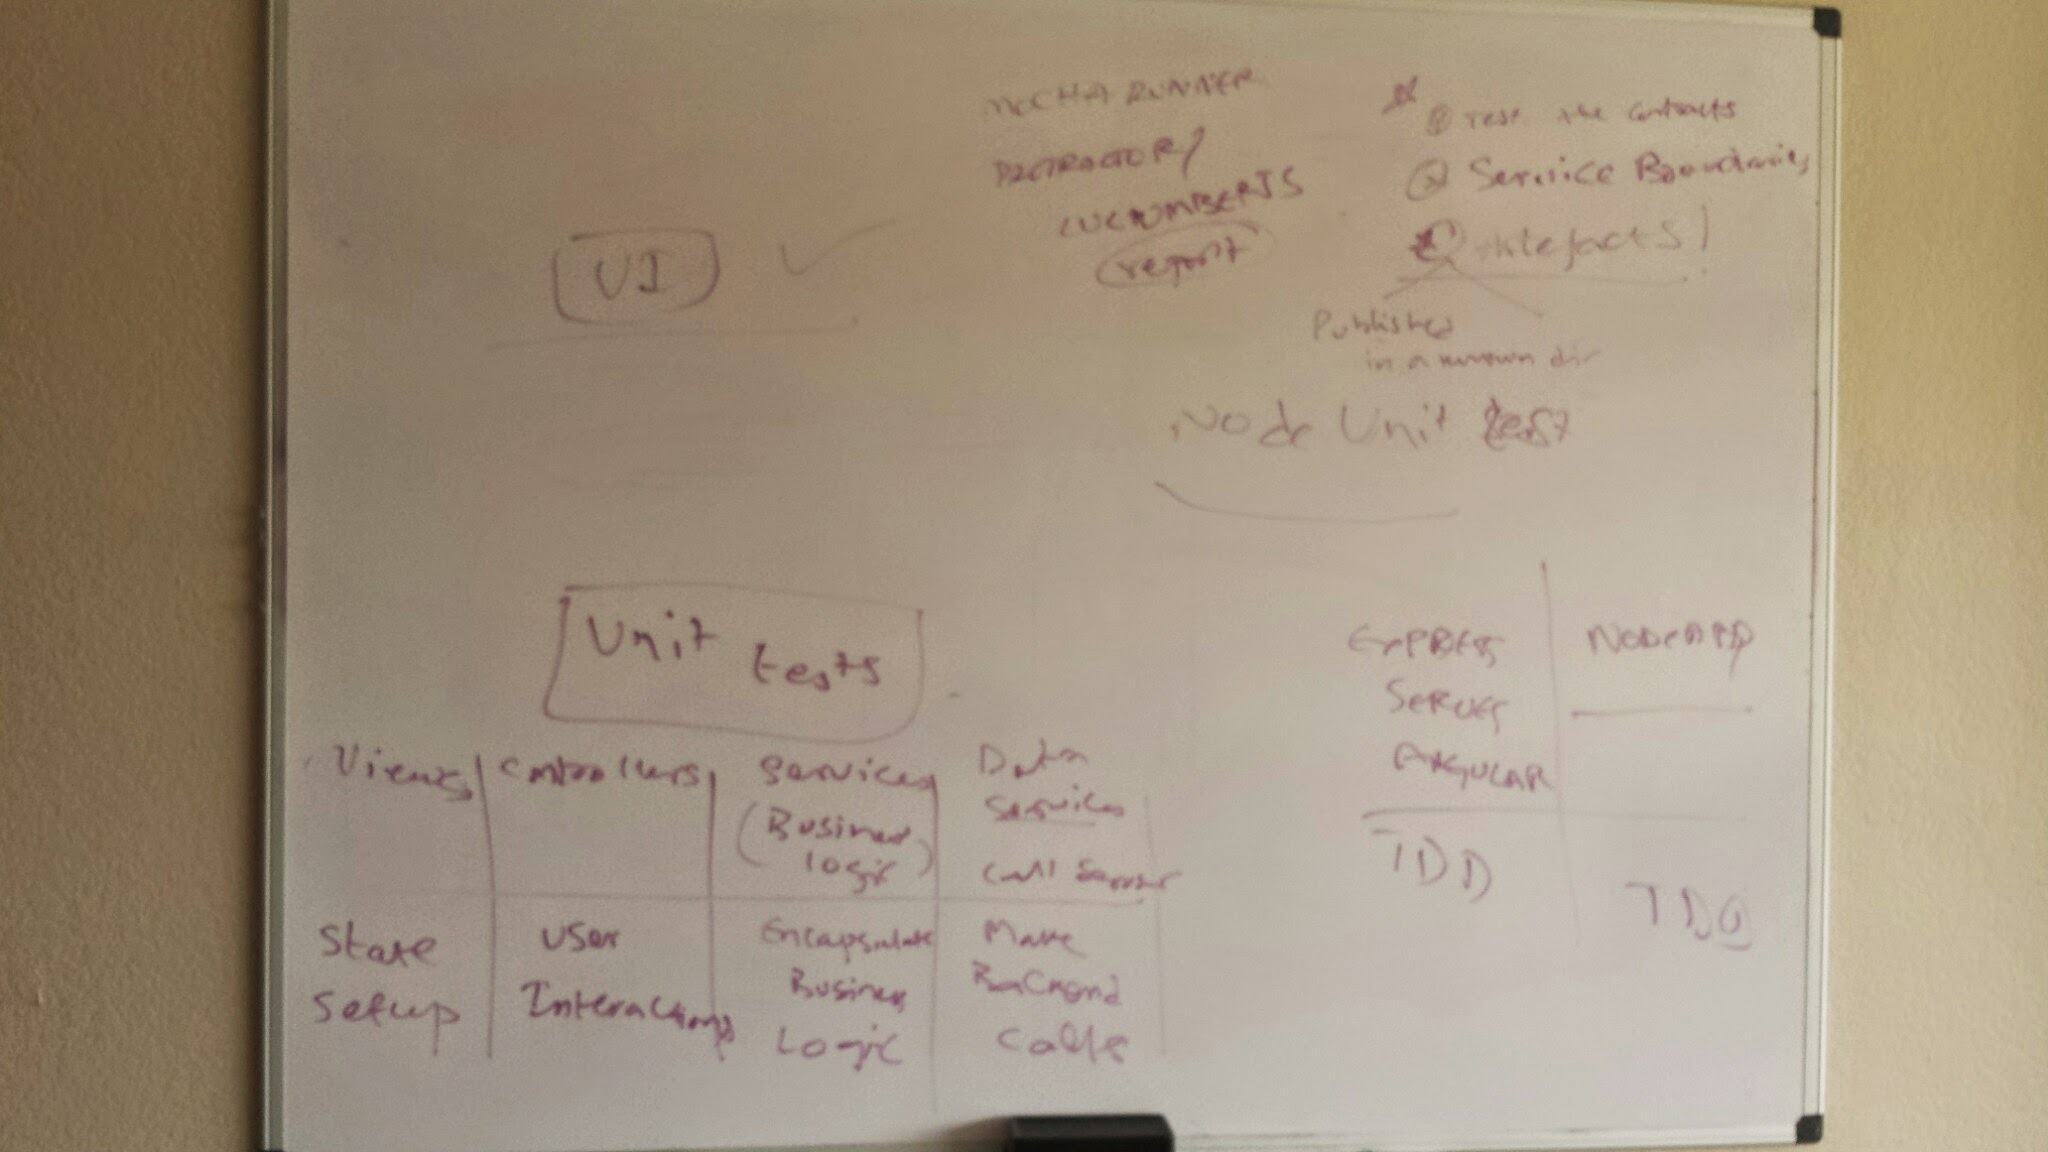 MOCHA RUNNER
PROTRACTOR/
CUCUMBERJS
report
① Test the contracts
② Service Boundaries
Artefacts)
Published
in a known dir
UI
Node Unit test
Unit tests
Views
Controllers
Services
(Business
logic)
Data
Services
Call Server
State
Setup
User
Interactions
Encapsulate
Business
Logic
Make
Backend
Calls
EXPRESS
SERVES
ANGULAR
NODEAPP
TDD
TDD